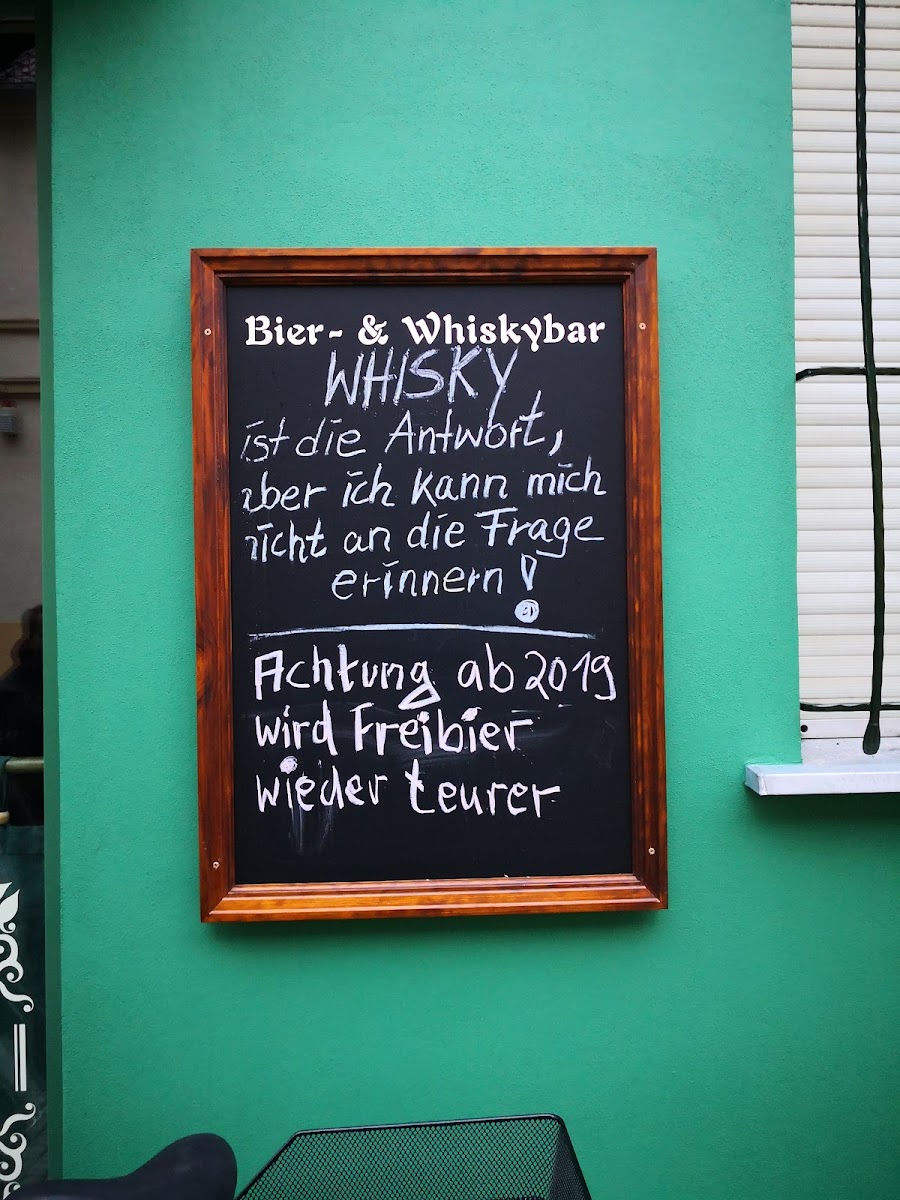 Bier- & Whiskybar
WHISKY
ist die Antwort,
aber ich kann mich
nicht an die Frage
erinnern!
Achtung ab 2019
wird Freibier
wieder teurer